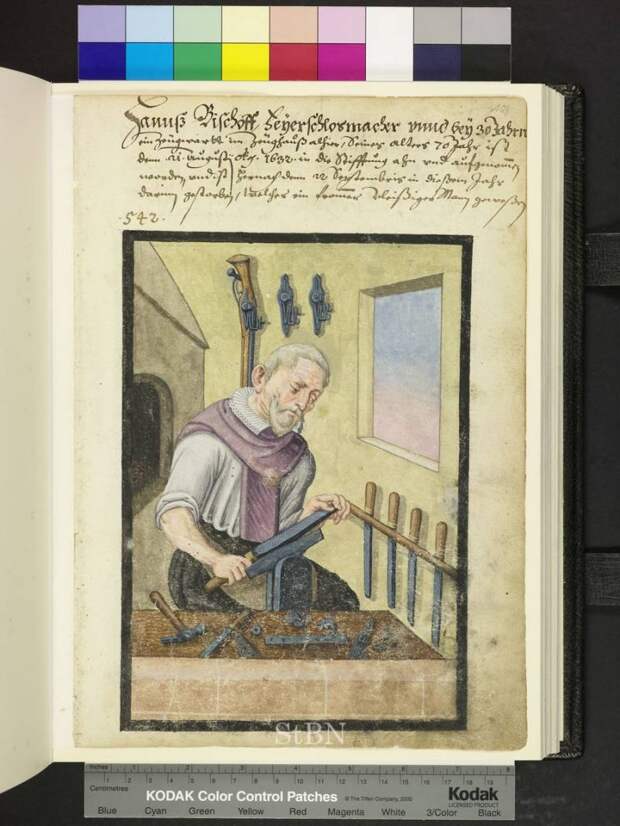 Hannß Bischoff Feyerschlosmacher vnnd bey 30 Jahrn
ein Zeügwartt im Zeüghauß alhier, Seines alters 70 Jahr ist
dem 21. Augusti Ao. 1632 in die Stifftung ahn vnd aufgenomen
worden, vnd ist hernach dem 12 Septembris in dießem Jahr
darinn gestorben, welcher ein fromer vleißiger Mann geweßen
.542.
StBN
Inches 1 2 3 4 5 6 7 8
Centimetres 1 2 3 4 5 6 7 8 9 10 11 12 13 14 15 16 17 18 19
KODAK Color Control Patches © The Tiffen Company, 2000 Kodak
LICENSED PRODUCT
Blue Cyan Green Yellow Red Magenta White 3/Color Black